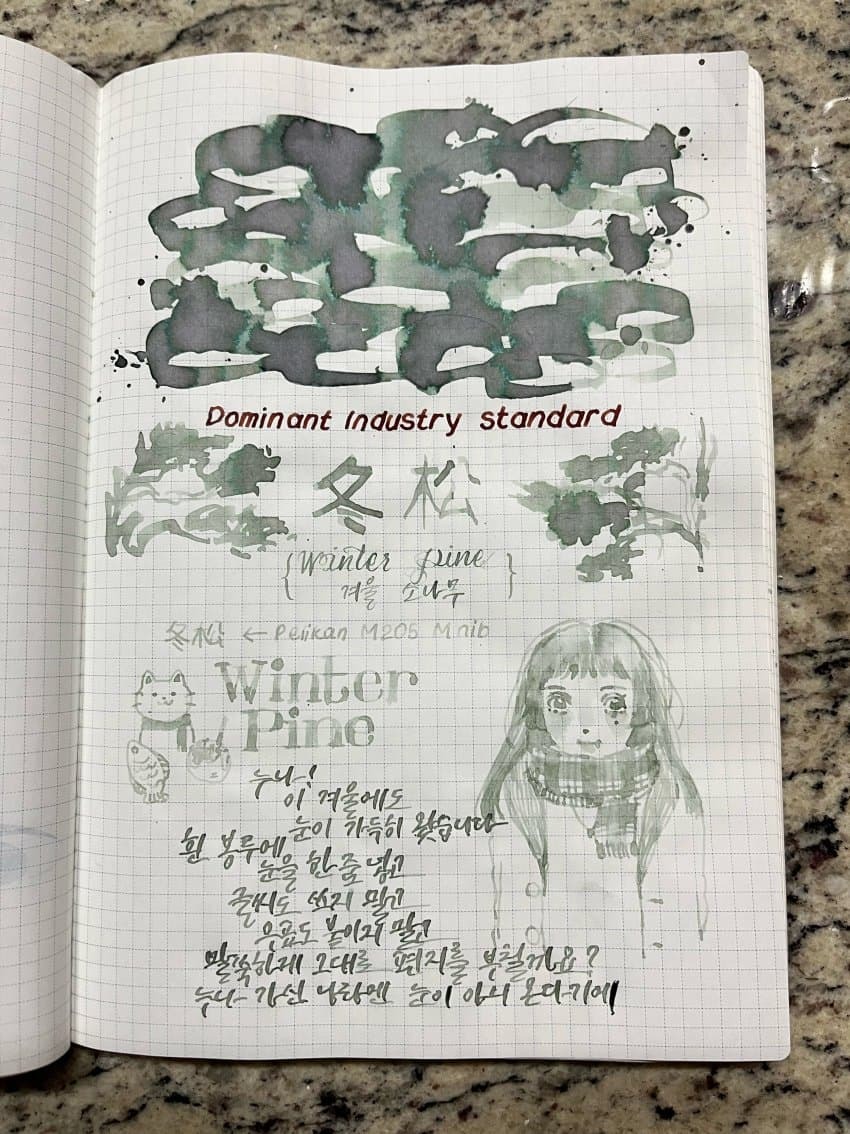 Dominant Industry standard
冬松
{Winter pine}
겨울 소나무
冬松 ← Pelikan M205 M nib
Winter
Pine
누나!
이 겨울에도
눈이 가득히 왔습니다
흰 봉투에
눈을 한 줌 넣고
글씨도 쓰지 말고
우표도 붙이지 말고
말쑥하게 그대로 편지를 부칠까요?
누나 가신 나라엔 눈이 아니 온다기에